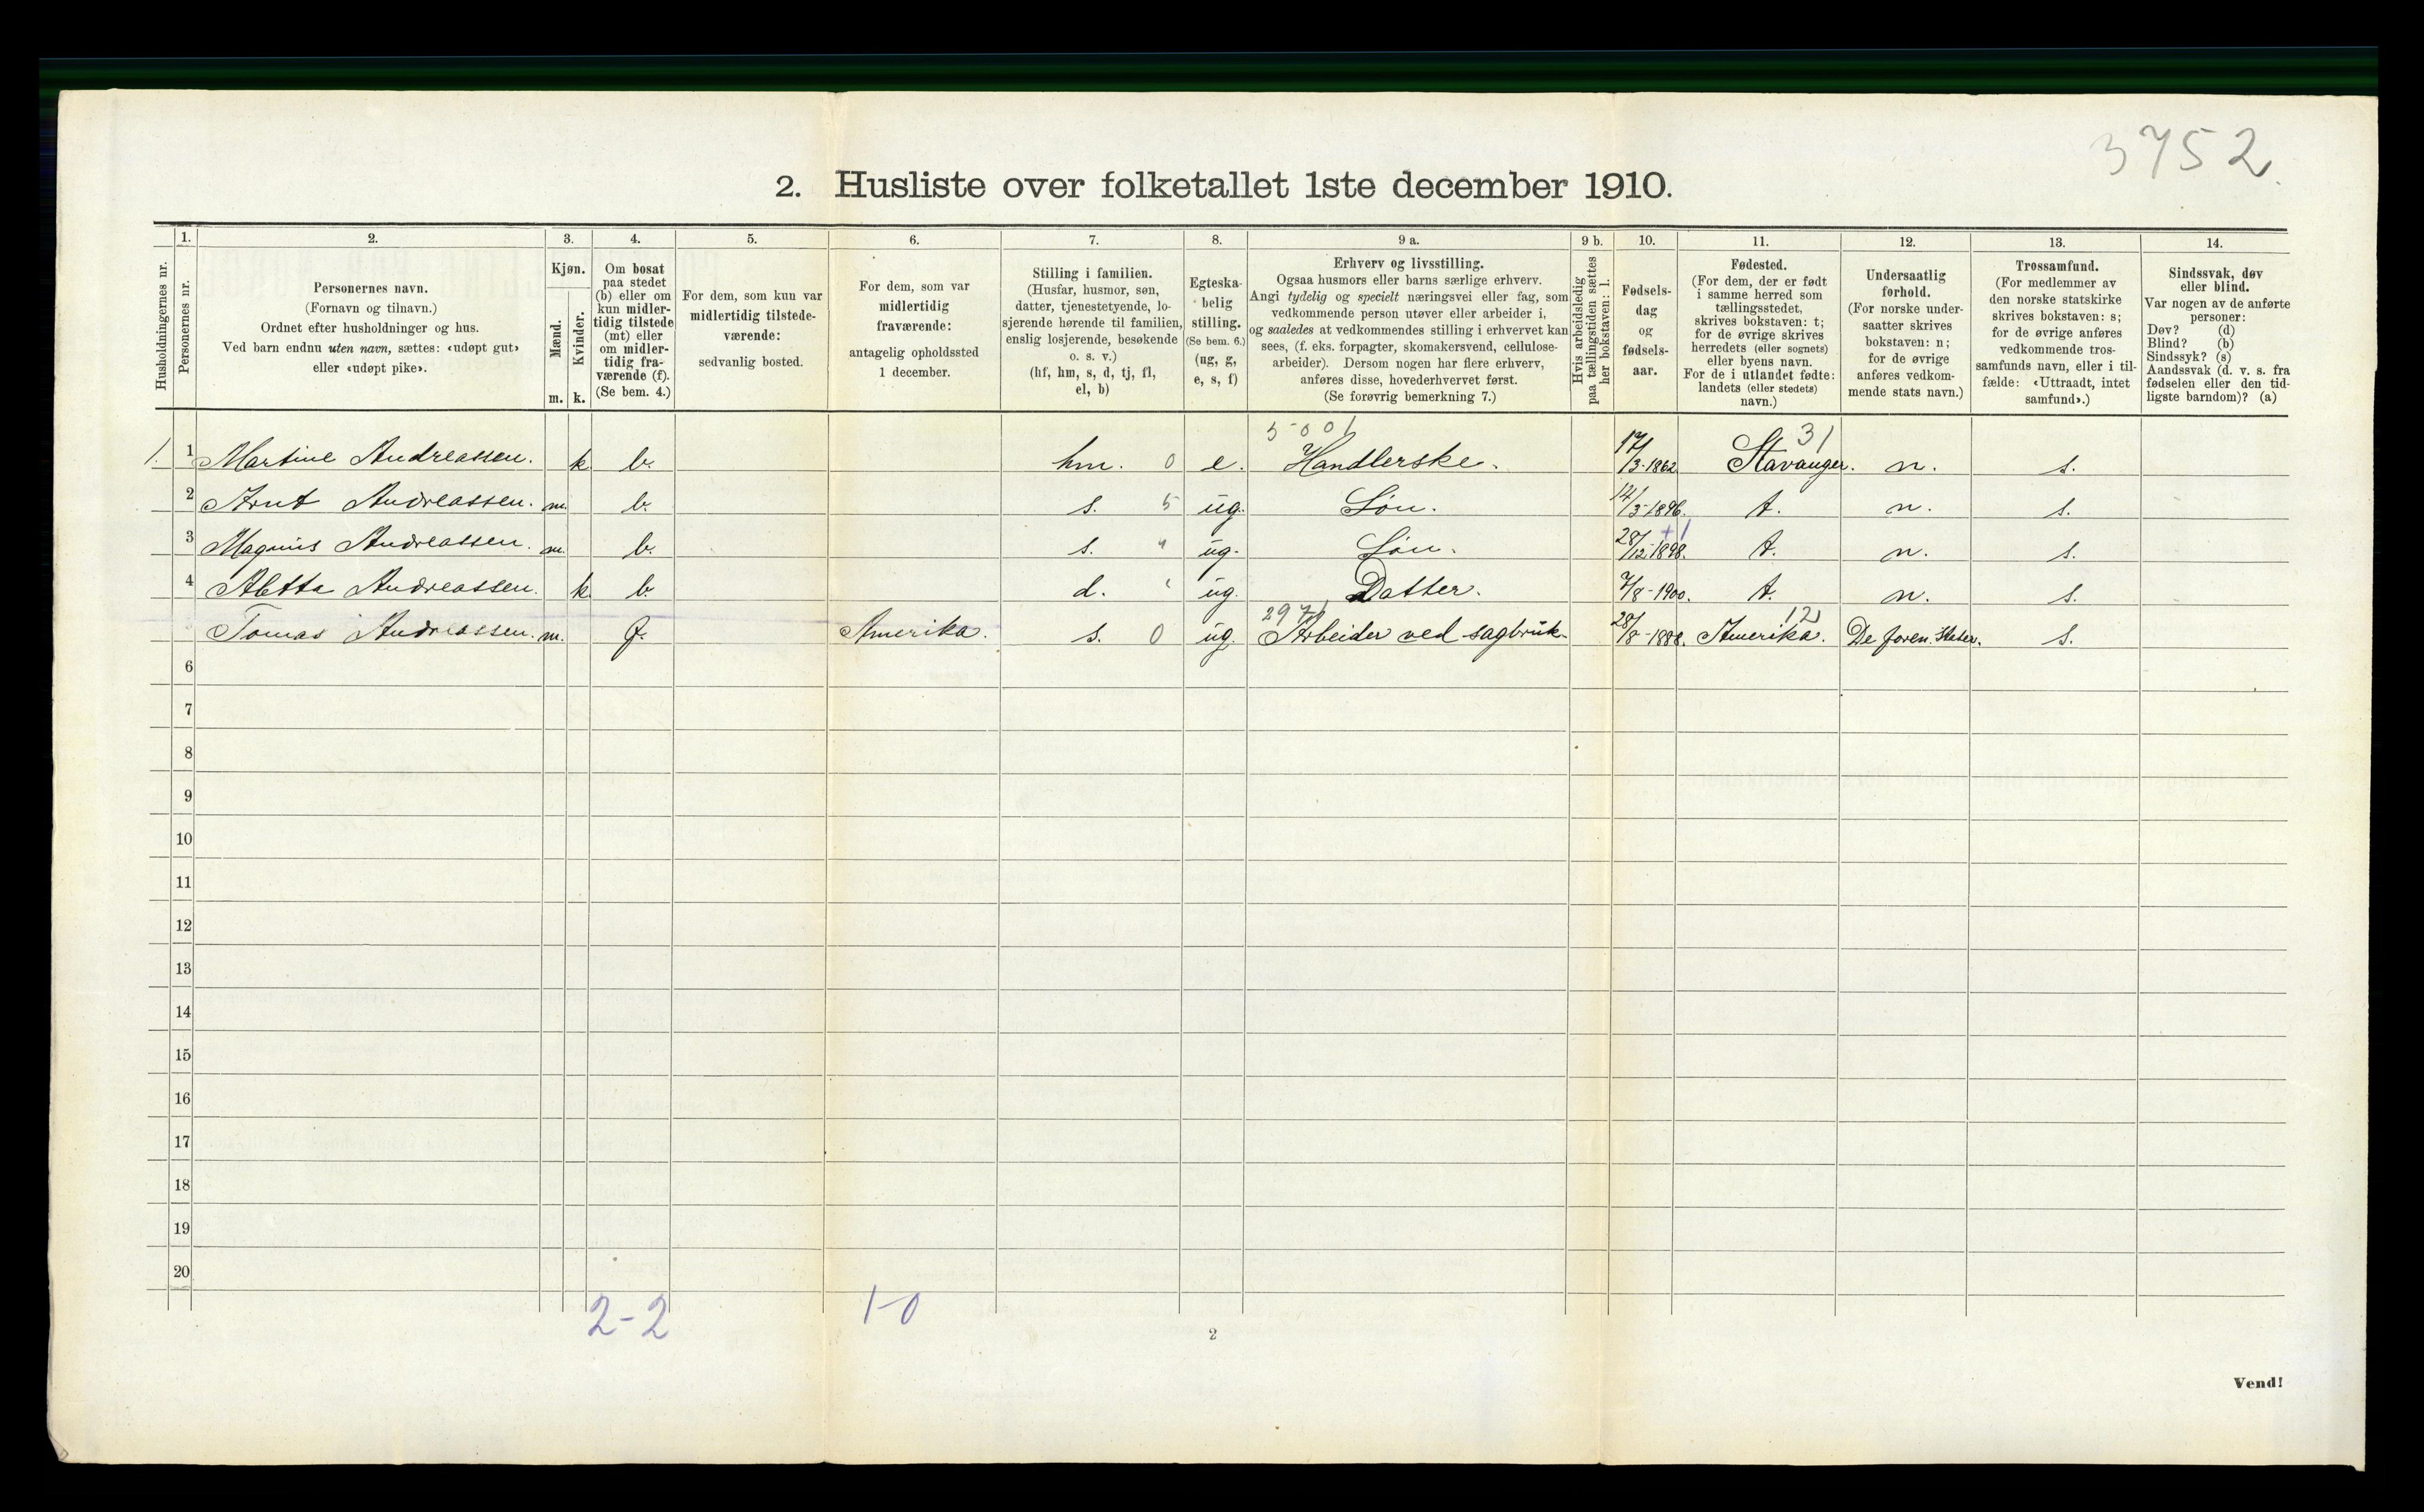 3752.
2. Husliste over folketallet 1ste december 1910.
Husholdningernes nr.
1.
Personernes nr.
2.
Personernes navn.
(Fornavn og tilnavn.)
Ordnet efter husholdninger og hus.
Ved barn endnu uten navn, sættes: «udøpt gut»
eller «udøpt pike».
3.
Kjøn.
Mænd.
m.
Kvinder.
k.
4.
Om bosat
paa stedet
(b) eller om
kun midler-
tidig tilstede
(mt) eller
om midler-
tidig fra-
værende (f).
(Se bem. 4.)
5.
For dem, som kun var
midlertidig tilstede-
værende:
sedvanlig bosted.
6.
For dem, som var
midlertidig
fraværende:
antagelig opholdssted
1 december.
7.
Stilling i familien.
(Husfar, husmor, søn,
datter, tjenestetyende, lo-
sjerende hørende til familien,
enslig losjerende, besøkende
o. s. v.)
(hf, hm, s, d, tj, fl,
el, b)
8.
Egteska-
belig
stilling.
(Se bem. 6.)
(ug, g,
e, s, f)
9 a.
Erhverv og livsstilling.
Ogsaa husmors eller barns særlige erhverv.
Angi tydelig og specielt næringsvei eller fag, som
vedkommende person utøver eller arbeider i,
og saaledes at vedkommendes stilling i erhvervet kan
sees, (f. eks. forpagter, skomakersvend, cellulose-
arbeider). Dersom nogen har flere erhverv,
anføres disse, hovederhvervet først.
(Se forøvrig bemerkning 7.)
9 b.
Hvis arbeidsledig
paa tællingstiden sættes
her bokstaven: l.
10.
Fødsels-
dag
og
fødsels-
aar.
11.
Fødested.
(For dem, der er født
i samme herred som
tællingsstedet,
skrives bokstaven: t;
for de øvrige skrives
herredets (eller sognets)
eller byens navn.
For de i utlandet fødte:
landets (eller stedets)
navn.)
12.
Undersaatlig
forhold.
(For norske under-
saatter skrives
bokstaven: n;
for de øvrige
anføres vedkom-
mende stats navn.)
13.
Trossamfund.
(For medlemmer av
den norske statskirke
skrives bokstaven: s;
for de øvrige anføres
vedkommende tros-
samfunds navn, eller i til-
fælde: «Uttraadt, intet
samfund».)
14.
Sindssvak, døv
eller blind.
Var nogen av de anførte
personer:
Døv? (d)
Blind? (b)
Sindssyk? (s)
Aandssvak (d. v. s. fra
fødselen eller den tid-
ligste barndom)? (a)
5001 31
1. 1 Martine Andreassen. k b. hm. 0 e. Handlerske. 17/3-1862 Stavanger. n. s.
2 Arnt Andreassen. m. b. s. 5 ug. Søn. 14/3-1896. t. n. s.
3 Magnus Andreassen. m. b. s. " ug. Søn. 28/12-1898. t. n. s.
4 Aletta Andreassen. k. b. d. ug. Datter. 7/8-1900. t. n. s.
297 12
Tomas Andreassen. m. f. Amerika. s. 0 ug. Arbeider ved sagbruk. 28/8-1888. Amerika. De foren. Stater. s.
6
7
8
9
10
11
12
13
14
15
16
17
18
19
20
2-2 1-0
2
Vend!